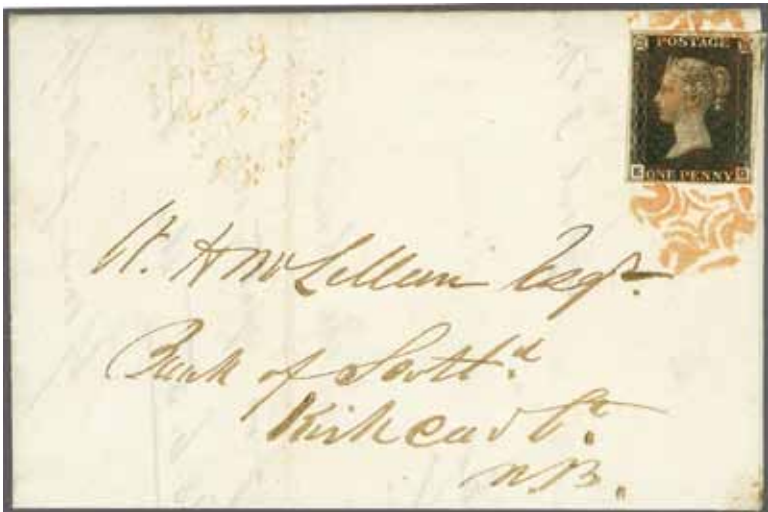 POSTAGE
E G
ONE PENNY
W. H McLellan Esqr.
Bank of Scottd.
Kirkcudbt.
N.B.